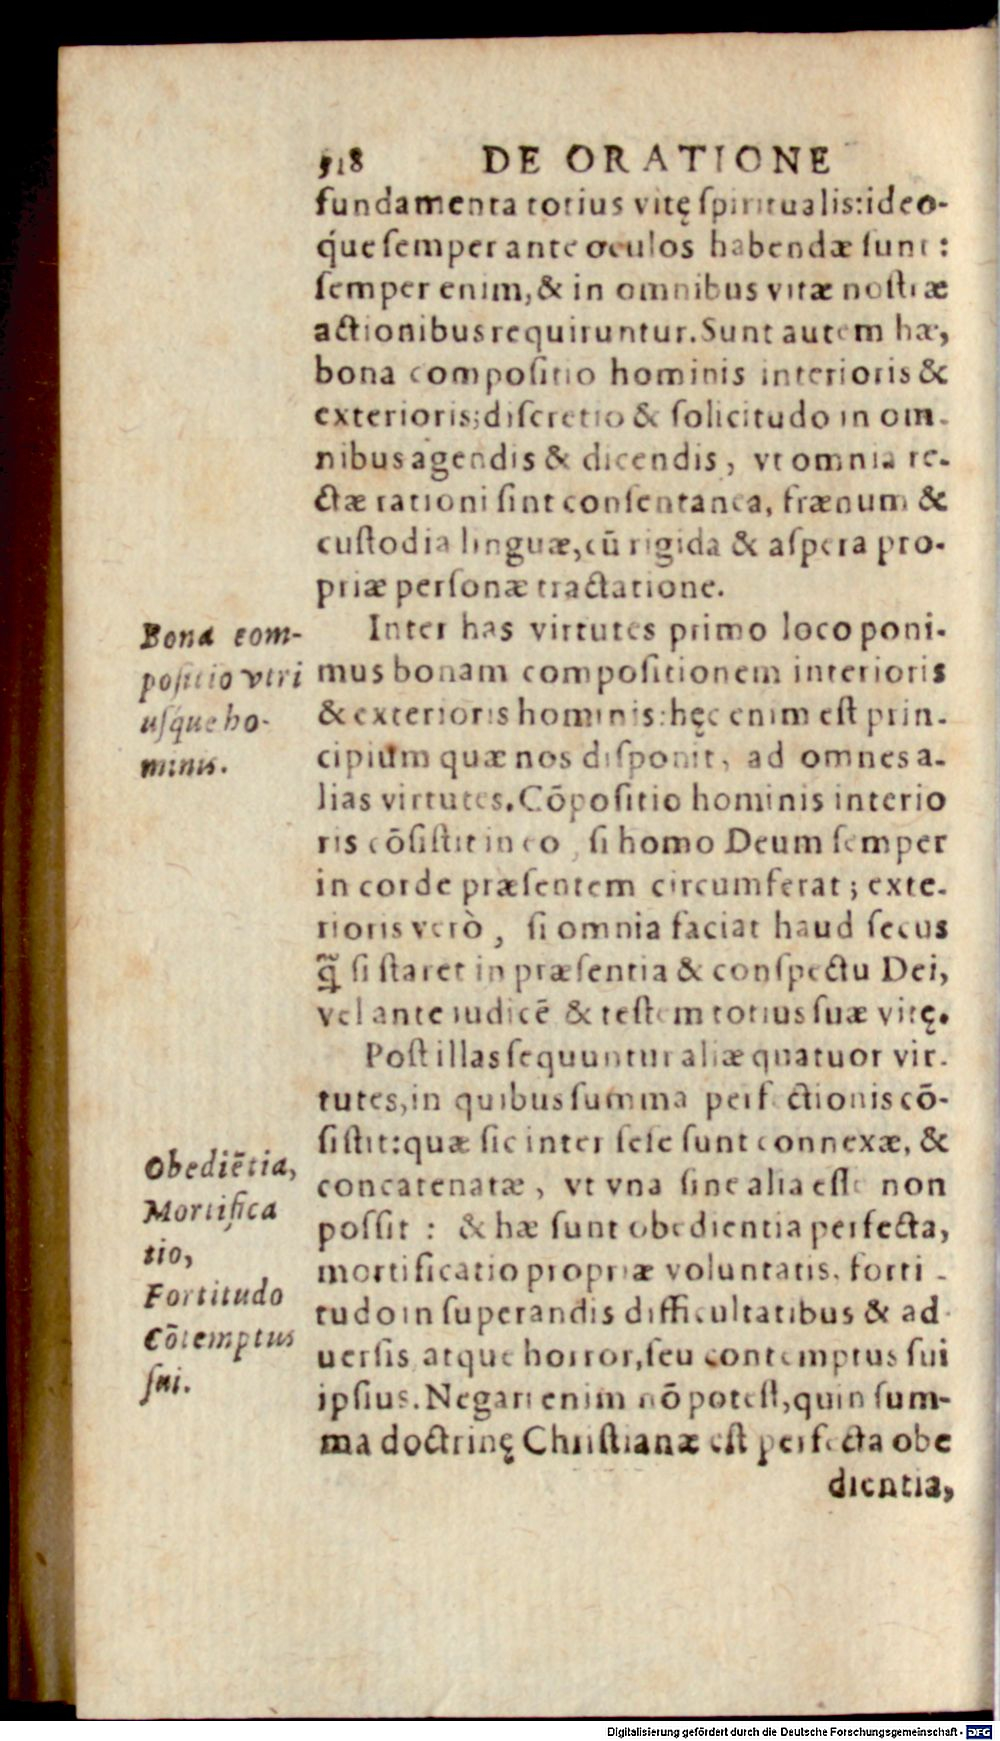 518 DE ORATIONE
fundamenta totius vitę ſpiritualis:ideo-
q́ue ſemper ante oculos habendæ ſunt:
ſemper enim, & in omnibus vitæ noſtræ
actionibus requiruntur. Sunt autem hæ,
bona compoſitio hominis interioris &
exterioris; diſcretio & ſolicitudo in om-
nibus agendis & dicendis, vt omnia re-
ctæ rationi ſint conſentanea, frænum &
cuſtodia linguæ, cũ rigida & aſpera pro-
priæ perſonæ tractatione.
Inter has virtutes primo loco poni-
mus bonam compoſitionem interioris
& exterioris hominis: hęc enim eſt prin-
cipium quæ nos diſponit, ad omnes a-
lias virtutes. Cõpoſitio hominis interio
ris cõſiſtit in eo, ſi homo Deum ſemper
in corde præſentem circumferat; exte-
rioris verò, ſi omnia faciat haud ſecus
q̃ ſi ſtaret in præſentia & conſpectu Dei,
vel ante iudicẽ & teſtem totius ſuæ vitę.
Poſt illas ſequuntur aliæ quatuor vir-
tutes, in quibus ſumma perfectionis cõ-
ſiſtit: quæ ſic inter ſeſe ſunt connexæ, &
concatenatæ, vt vna ſine alia eſſe non
poſſit: & hæ ſunt obedientia perfecta,
mortificatio propriæ voluntatis, forti-
tudo in ſuperandis difficultatibus & ad
uerſis atque horror, ſeu contemptus ſui
ipſius. Negari enim nõ poteſt, quin ſum-
ma doctrinę Chriſtianæ eſt perfecta obe
dientia,
Bona com-
poſitio vtri
uſq́ue ho-
minis.
Obediẽtia,
Mortifica
tio,
Fortitudo
Cõtemptus
ſui.
Digitalisierung gefördert durch die Deutsche Forschungsgemeinschaft - DFG